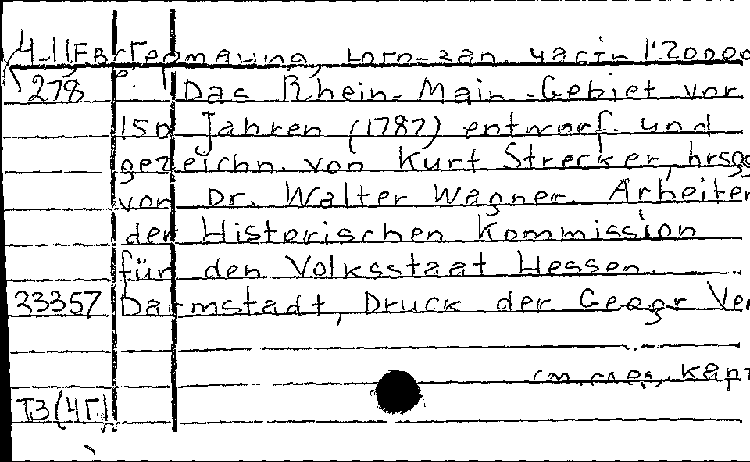 Германия, юго-зап. части 1:200000
278 Das Rhein-Main-Gebiet vor
150 Jahren (1787) entworf. und
gezeichn. von Kurt Strecker, hrsg
von Dr. Walter Wagner. Arbeiten
der Historischen Kommission
für den Volksstaat Hessen.
33357 Darmstadt, Druck der Geogr Ver
см. след. карт